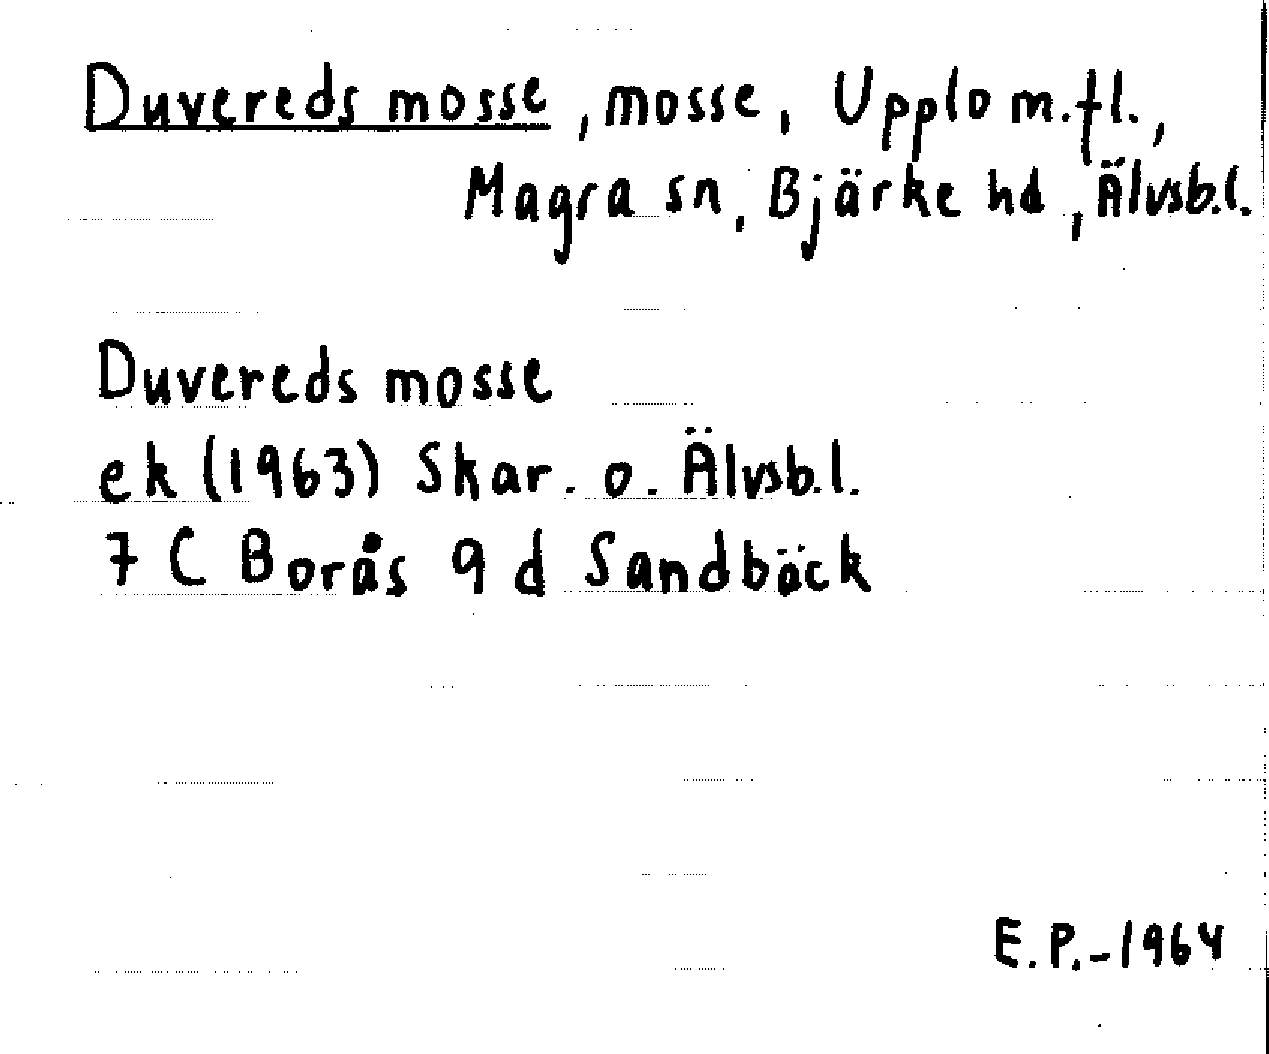 Duvereds mosse, mosse, Upplo m.fl.,
Magra sn, Bjärke hd, Älvsb.l.
Duvereds mosse
ek (1963) Skar. o. Älvsb.l.
7 C Borås 9 d Sandbäck
E.P.-1964